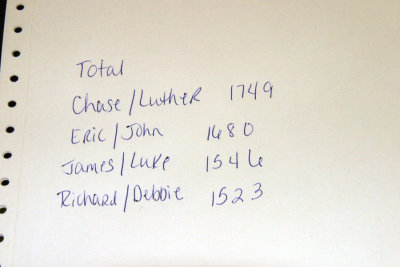 Total
Chase/Luther 1749
Eric/John 1680
James/Luke 1546
Richard/Debbie 1523